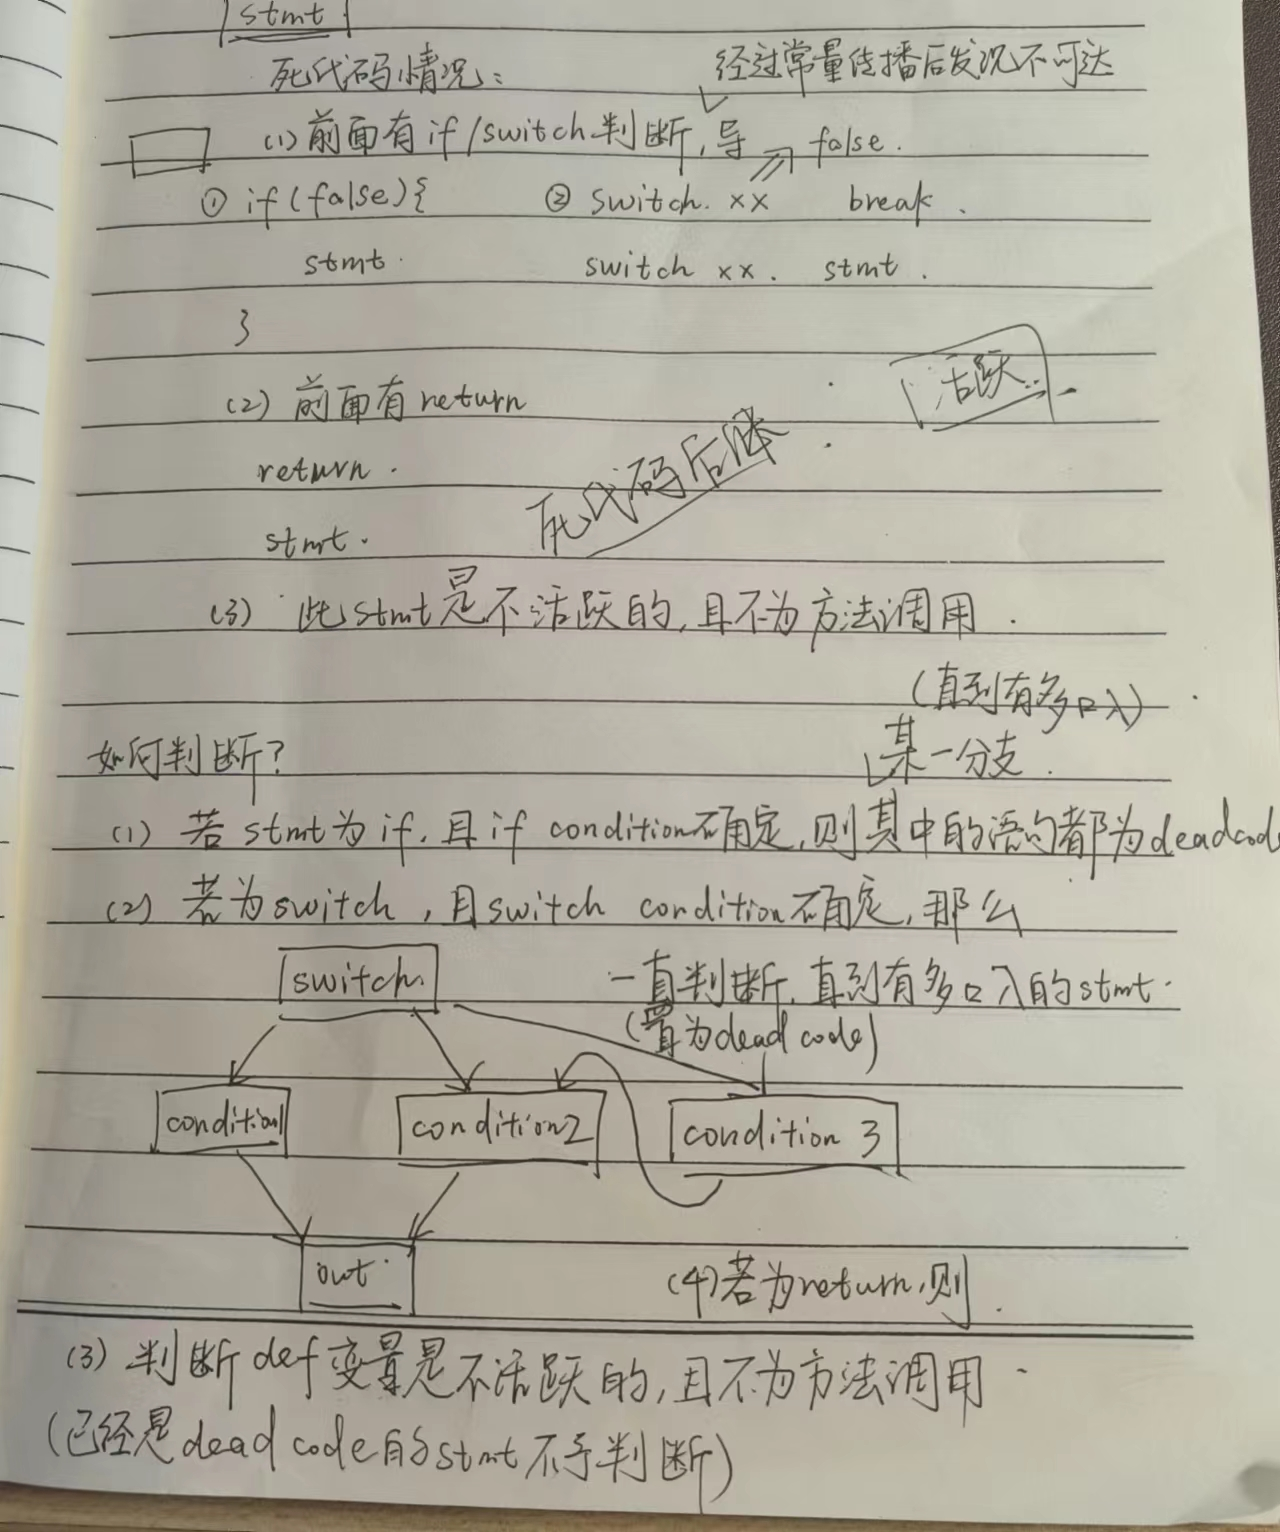 stmt
死代码情况:
经过常量传播后发现不可达
(1) 前面有if/switch判断,导 false.
① if(false){ ② switch. ×× break.
stmt. switch ××. stmt.
}
活跃
(2) 前面有return
return.
死代码后继
stmt.
(3) 此stmt是不活跃的,且不为方法调用.
(直到有多口入)
如何判断? 某一分支.
(1) 若stmt为if,且if condition不确定,则其中的语句都为deadcod
(2) 若为switch,且switch condition不确定,那么
switch 一直判断,直到有多口入的stmt.
(置为dead code)
condition1 condition2 condition 3
out (4)若为return,则.
(3) 判断def变量是不活跃的,且不为方法调用.
(已经是dead code的stmt不予判断)